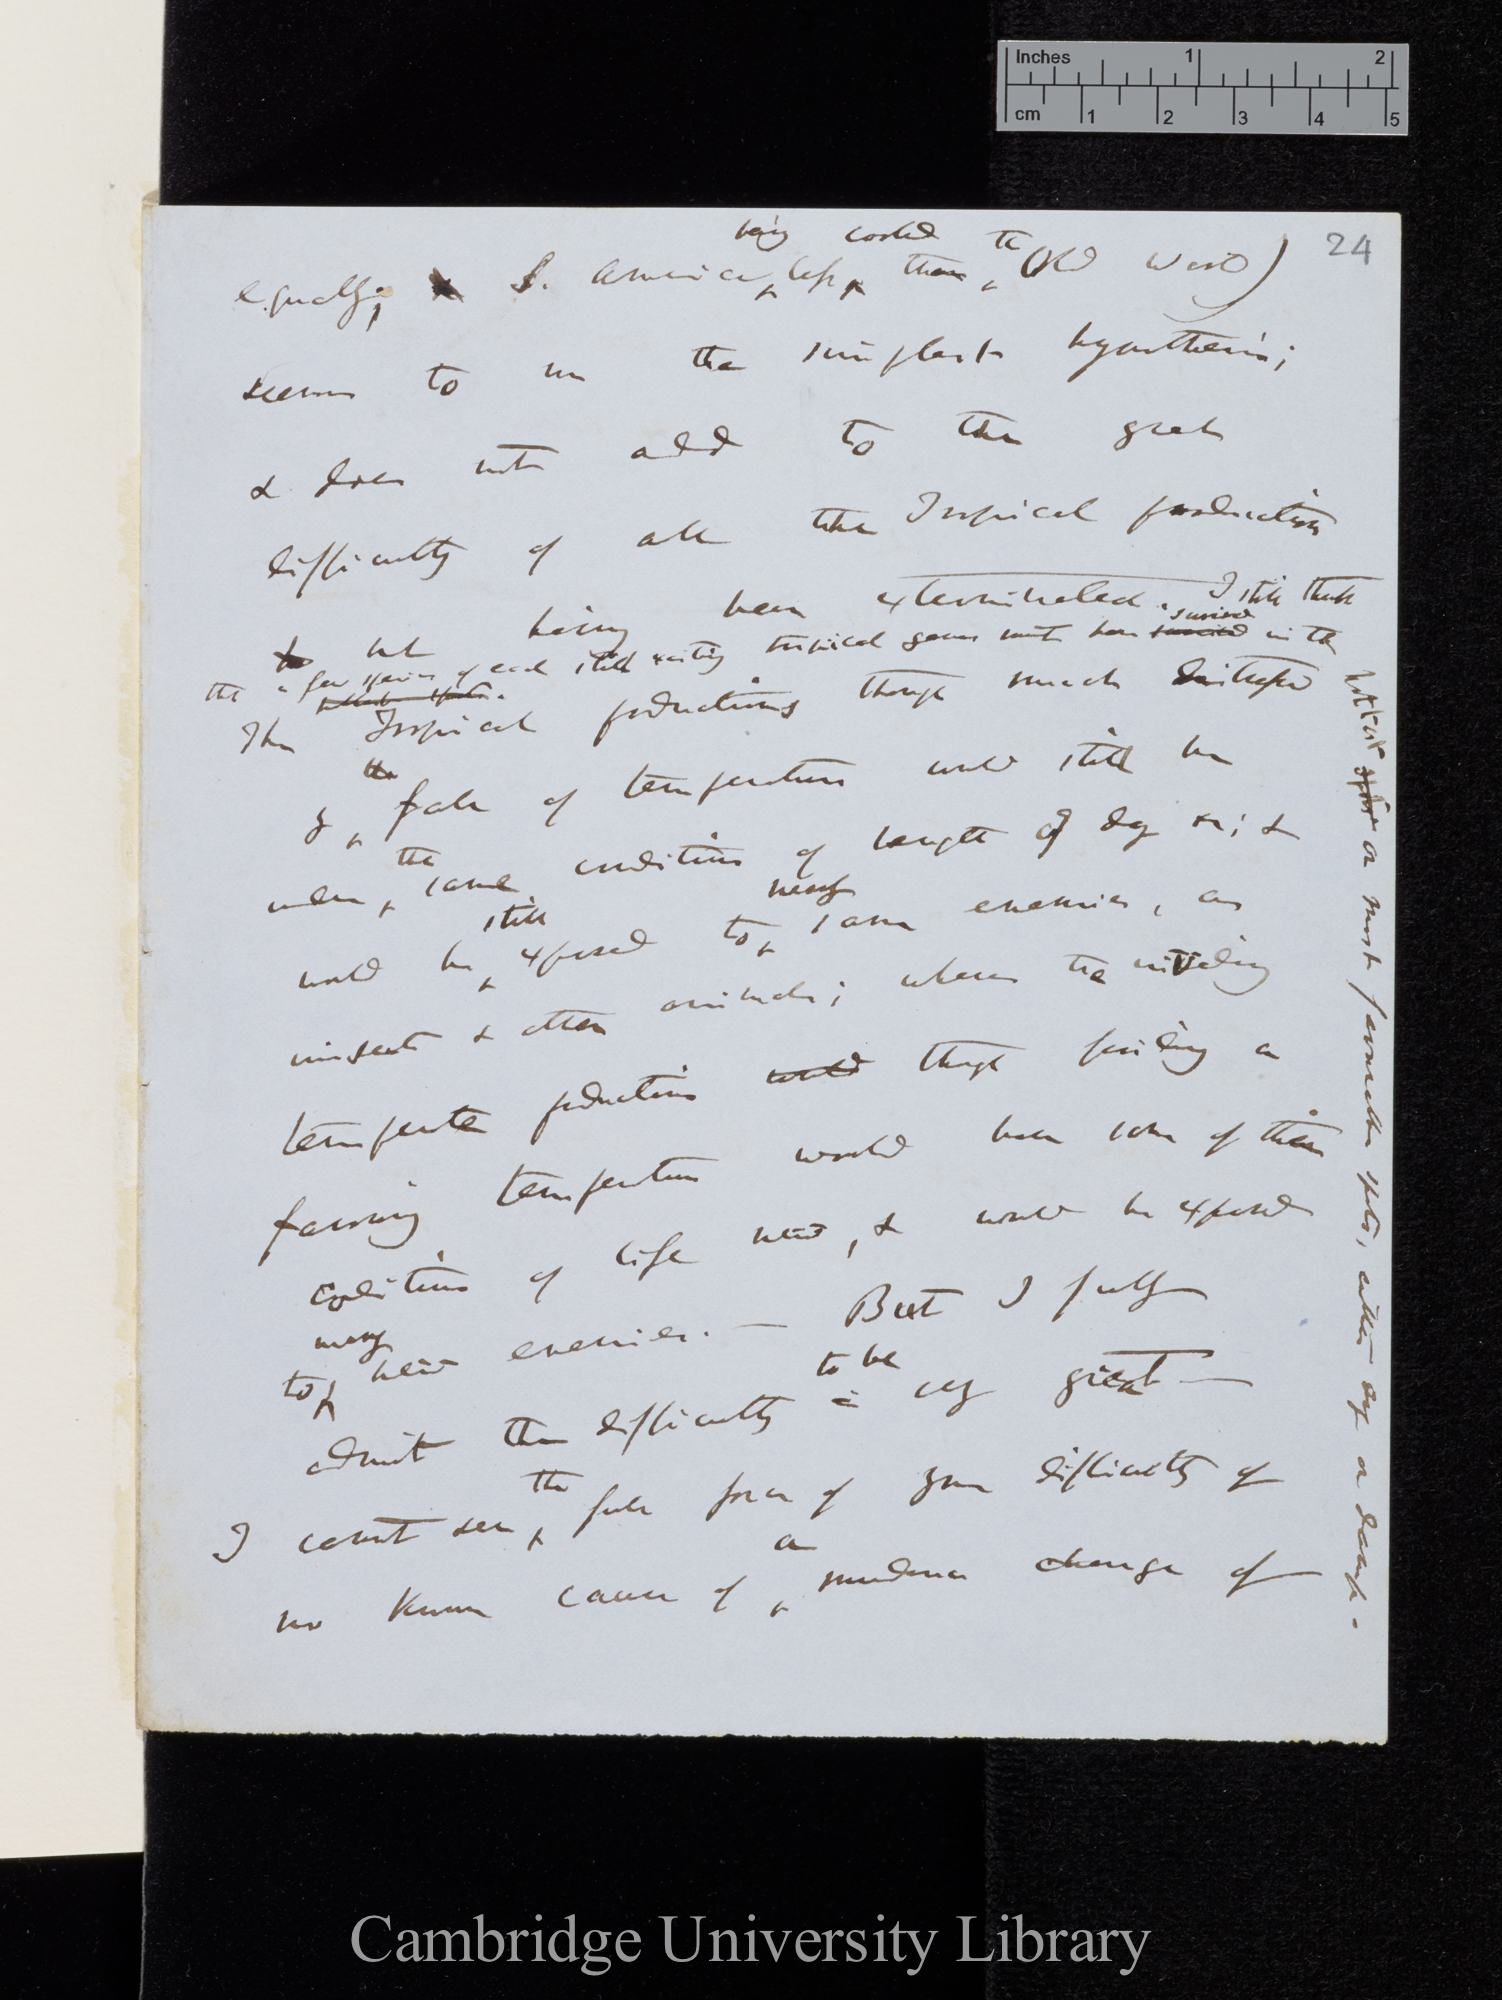 Inches 1 2
cm 1 2 3 4 5
24
being cooled the
equally; S. America, less, than, Old World)
seems to me the simplest hypothesis;
& does not add to the great
difficulty of all the Tropical productions
not having been exterminated. I still think
the a few species of each still existing tropical genus must have survived survived in the
The Tropical productions though much
the
by fall of temperature would still be
the
under, same conditions of length of day &c; &
still nearly
would be, exposed to, same enemies, as
insects & other animals; whereas the invading
temperate productions would though finding a
favouring temperature would have some of their
conditions of life new, & would be exposed
many
to, new enemies. — But I fully
to be
admit the difficulty is very great —
the
I cannot see, full force of your difficulty of
a
no known cause of, mundane change of
hottest spots or most favourable spots, either dry or damp.
Cambridge University Library